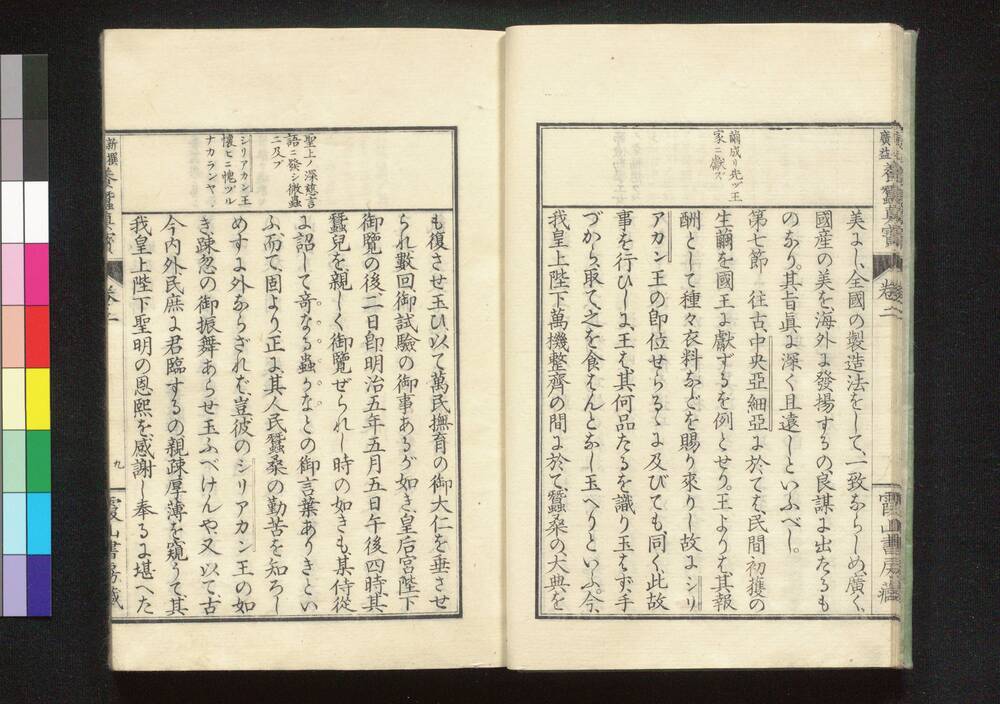 廣益養蠶眞寶 卷二 霞山書房藏
繭成リ先ヅ王
家ニ獻ズ
美よし、全國の製造法をして、一致ならしめ、廣く、
國産の美を、海外よ發揚するの良謀よ出たるも
のなり。其旨眞よ深く且遠しといふべし。
第七節 往古、中央亞細亞よ於てハ、民間初獲の
生繭を國王よ獻ずるを例とせり。王よりハ、其報
酬として種々衣料などを賜り來りし故よシリ
アカン王の卽位せらるゝよ及びても同く、此故
事を行ひしよ、王ハ、其何品たるを識り玉はず、手
づから、取て、之を食はんとなし玉へりといふ。今、
我皇上陛下萬機整齊の間よ於て、蠶桑の、大典を
聖上ノ深慈言
語ニ發シ微蟲
ニ及ブ
シリアカン王
懷ヒニ愧ヅル
ナカランヤ
も復させ玉ひ、以て萬民撫育の御大仁を垂させ
られ數回、御試驗の御事あるが如き、皇后宮陛下
御覽の後、二日卽明治五年五月五日午後四時、其
蠶兒を、親しく御覽ぜられし時の如きも、某侍從
よ詔して、竒なる蟲かなとの御言葉ありきとい
ふ、而て、固より、正よ、其人民蠶桑の勤苦を知ろし
めすよ外ならざれバ、豈彼のシリアカン王の如
き、疎忽の御振舞あらせ玉ふべけんや、又、以て、古
今內外民庶よ君臨するの親疎厚薄を窺うて、其
我皇上陛下聖明の恩熙を、感謝し奉るよ堪へた
新撰養蠶眞寶 卷二 九 霞山書房藏